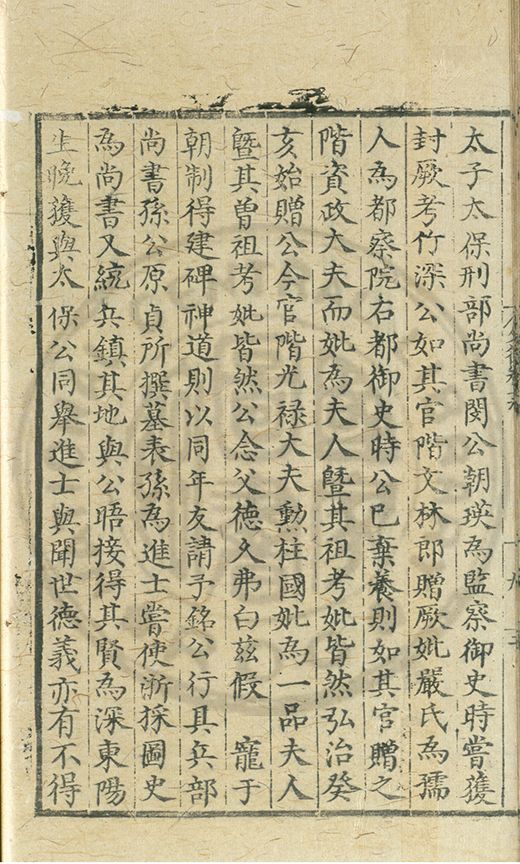 太子太保刑部尚書閔公朝瑛為監察御史時嘗獲
封厥考竹深公如其官階文林郎贈厥妣嚴氏為孺
人為都察院右都御史時公已棄養則如其官贈之
階資政大夫而妣為夫人曁其祖考妣皆然弘治癸
亥始贈公今官階光禄大夫勳柱國妣為一品夫人
曁其曽祖考妣皆然公念父德久弗白兹假 寵于
朝制得建碑神道則以同年友請予銘公行具兵部
尚書孫公原貞所撰墓表孫為進士嘗使浙採圖史
為尚書又統兵鎮其地與公晤接得其賢為深東陽
生晚獲與太保公同舉進士與聞世德義亦有不得